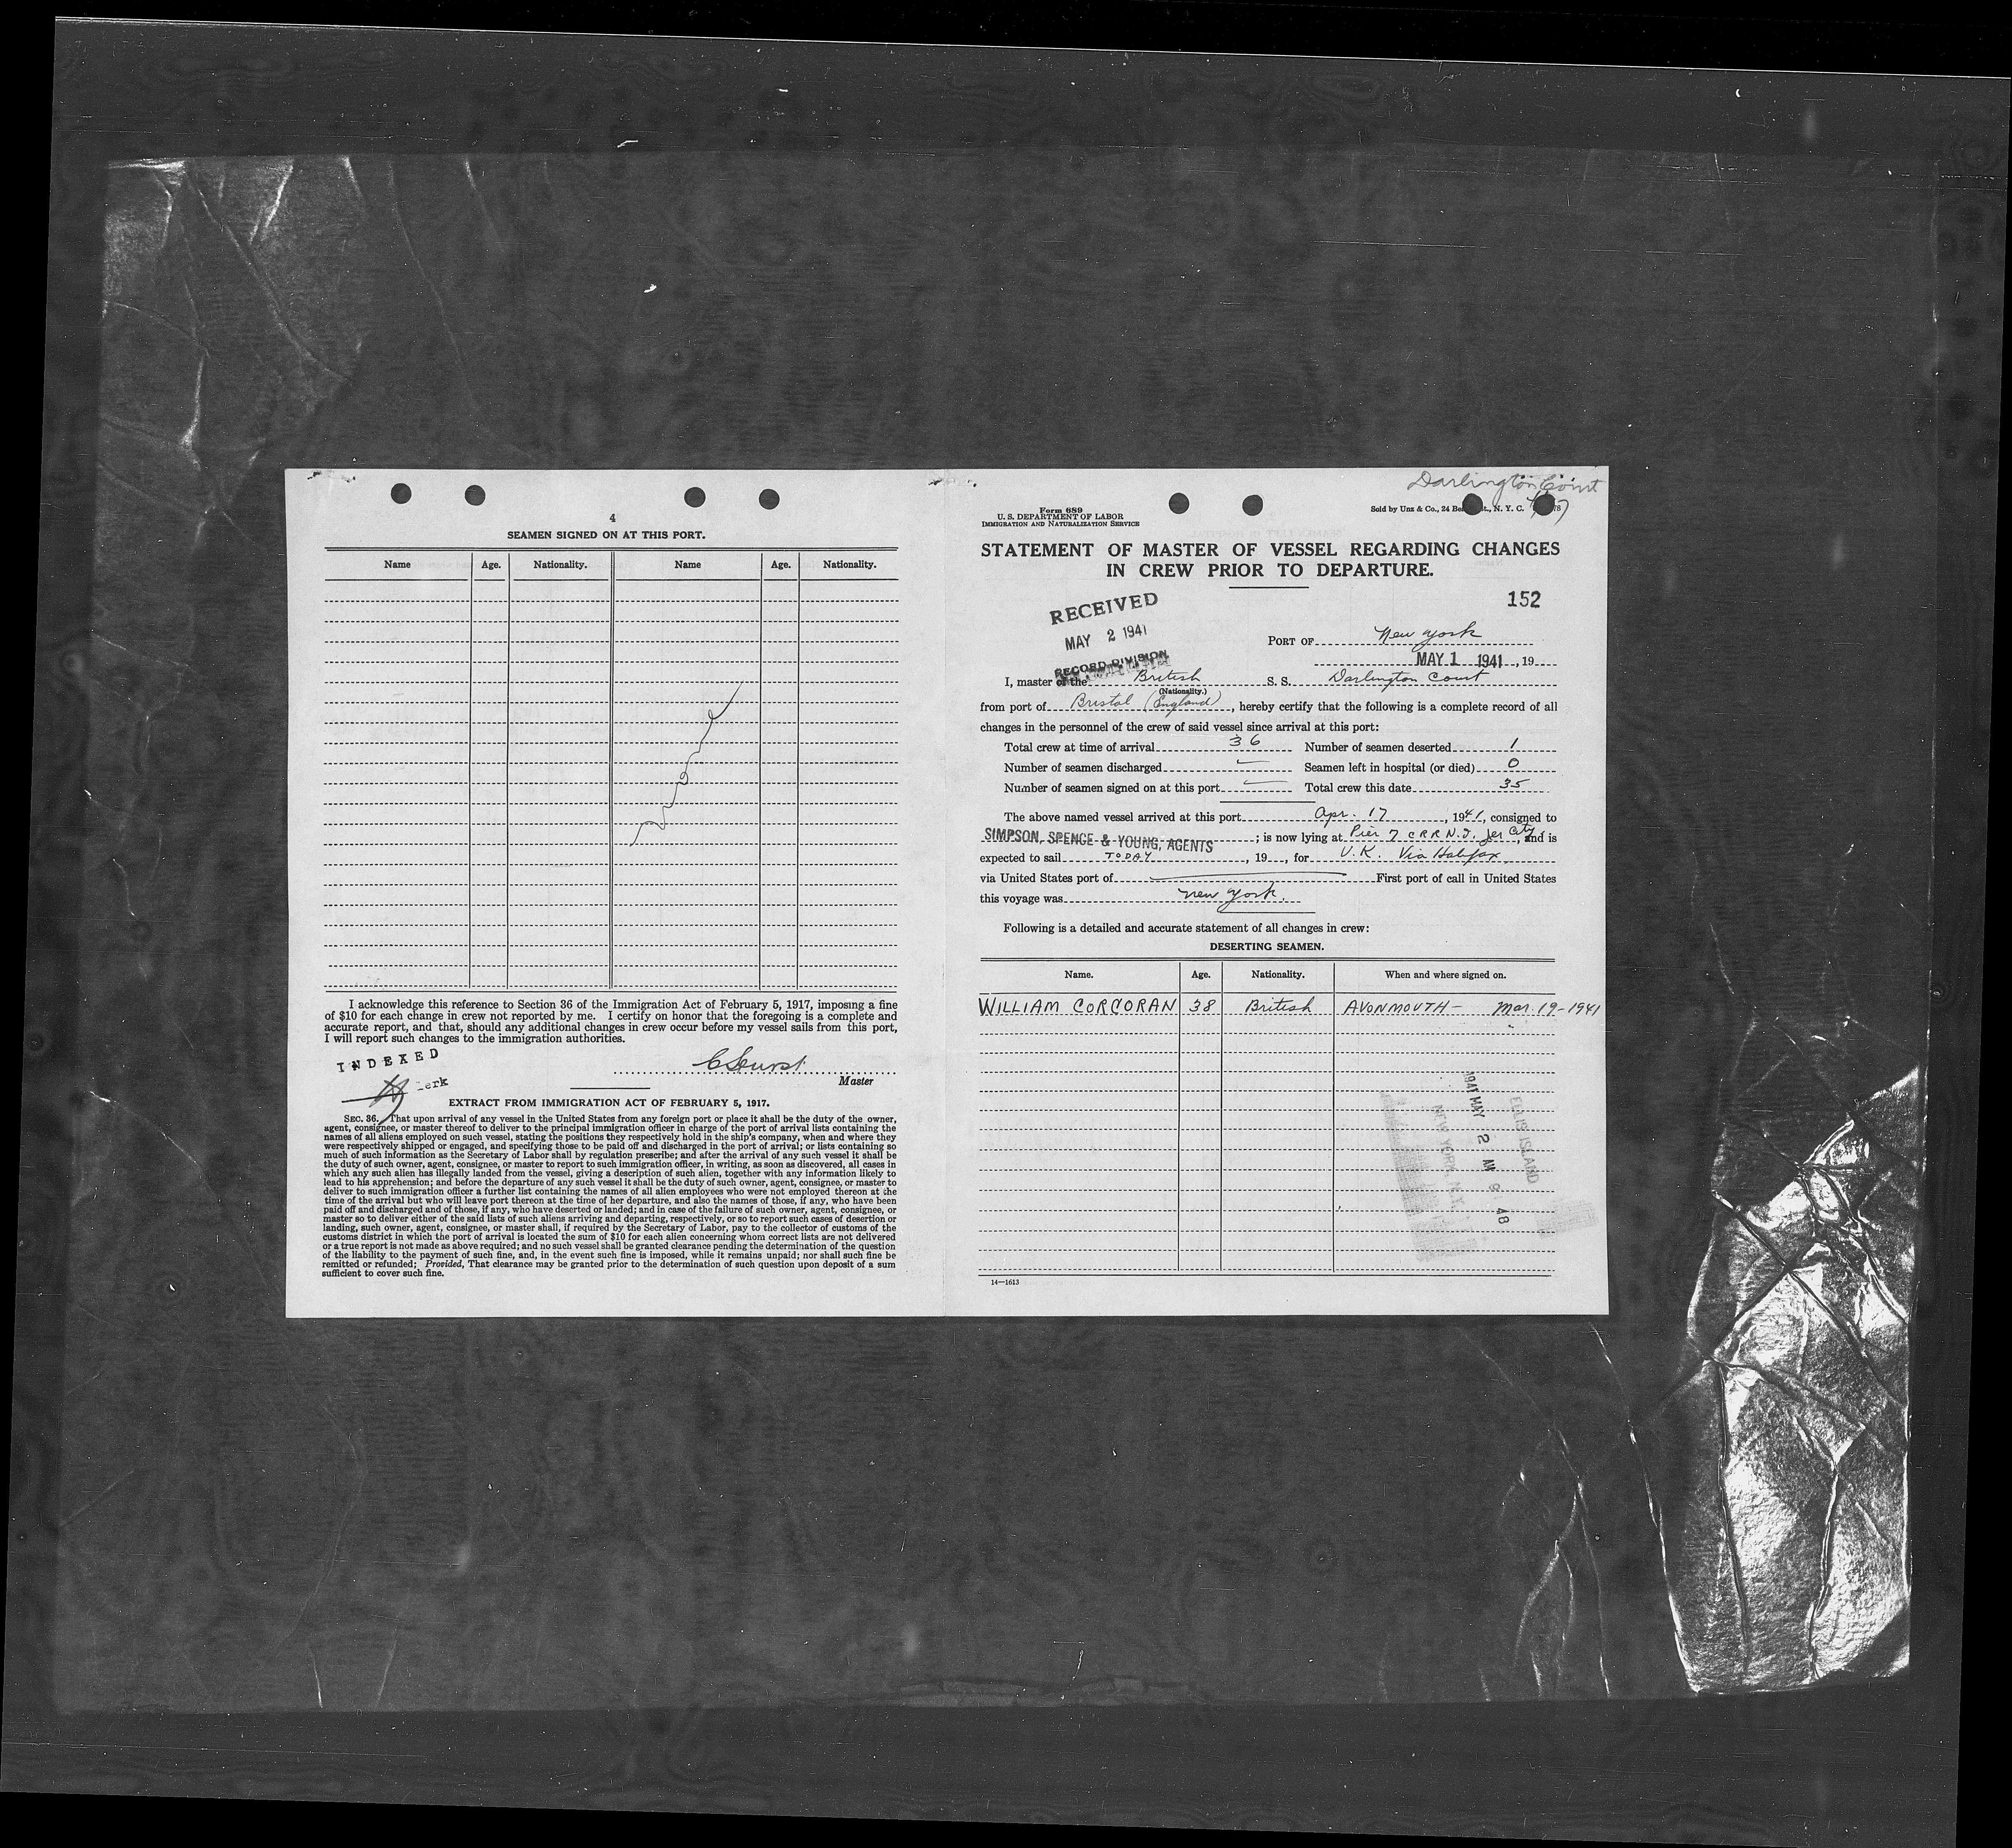 4
SEAMEN SIGNED ON AT THIS PORT.
Name Age. Nationality. Name Age. Nationality.
I acknowledge this reference to Section 36 of the Immigration Act of February 5, 1917, imposing a fine
of $10 for each change in crew not reported by me. I certify on honor that the foregoing is a complete and
accurate report, and that, should any additional changes in crew occur before my vessel sails from this port,
I will report such changes to the immigration authorities.
INDEXED
Master
EXTRACT FROM IMMIGRATION ACT OF FEBRUARY 5, 1917.
SEC. 36. That upon arrival of any vessel in the United States from any foreign port or place it shall be the duty of the owner,
agent, consignee, or master thereof to deliver to the principal immigration officer in charge of the port of arrival lists containing the
names of all aliens employed on such vessel, stating the positions they respectively hold in the ship's company, when and where they
were respectively shipped or engaged, and specifying those to be paid off and discharged in the port of arrival; or lists containing so
much of such information as the Secretary of Labor shall by regulation prescribe; and after the arrival of any such vessel it shall be
the duty of such owner, agent, consignee, or master to report to such immigration officer, in writing, as soon as discovered, all cases in
which any such alien has illegally landed from the vessel, giving a description of such alien, together with any information likely to
lead to his apprehension; and before the departure of any such vessel it shall be the duty of such owner, agent, consignee, or master to
deliver to such immigration officer a further list containing the names of all alien employees who were not employed thereon at the
time of the arrival but who will leave port thereon at the time of her departure, and also the names of those, if any, who have been
paid off and discharged and of those, if any, who have deserted or landed; and in case of the failure of such owner, agent, consignee, or
master so to deliver either of the said lists of such aliens arriving and departing, respectively, or so to report such cases of desertion or
landing, such owner, agent, consignee, or master shall, if required by the Secretary of Labor, pay to the collector of customs of the
customs district in which the port of arrival is located the sum of $10 for each alien concerning whom correct lists are not delivered
or a true report is not made as above required; and no such vessel shall be granted clearance pending the determination of the question
of the liability to the payment of such fine, and, in the event such fine is imposed, while it remains unpaid; nor shall such fine be
remitted or refunded; Provided, That clearance may be granted prior to the determination of such question upon deposit of a sum
sufficient to cover such fine.
Darlington Court
Form 689
U. S. DEPARTMENT OF LABOR
IMMIGRATION AND NATURALIZATION SERVICE
Sold by Unz & Co., 24 N. Y. C.
STATEMENT OF MASTER OF VESSEL REGARDING CHANGES
IN CREW PRIOR TO DEPARTURE.
152
RECEIVED
MAY 2 1941
RECORD DIVISION
PORT OF New York
MAY 1 1941, 19
I, master of the British S. S. Darlington Court
(Nationality.)
from port of Bristol (England), hereby certify that the following is a complete record of all
changes in the personnel of the crew of said vessel since arrival at this port:
Total crew at time of arrival 36 Number of seamen deserted 1
Number of seamen discharged Seamen left in hospital (or died) 0
Number of seamen signed on at this port Total crew this date 35
The above named vessel arrived at this port Apr. 17, 1941, consigned to
SIMPSON, SPENCE & YOUNG, AGENTS; is now lying at Pier 7 C R R N.J. Jer City, and is
expected to sail TODAY, 19, for U.K. Via Halifax
via United States port of First port of call in United States
this voyage was New York.
Following is a detailed and accurate statement of all changes in crew:
DESERTING SEAMEN.
Name. Age. Nationality. When and where signed on.
WILLIAM CORCORAN 38 British AVONMOUTH - Mar. 19-1941
1941 MAY 2 AM 9 48
ELLIS ISLAND
NEW YORK, N.Y.
14—1613